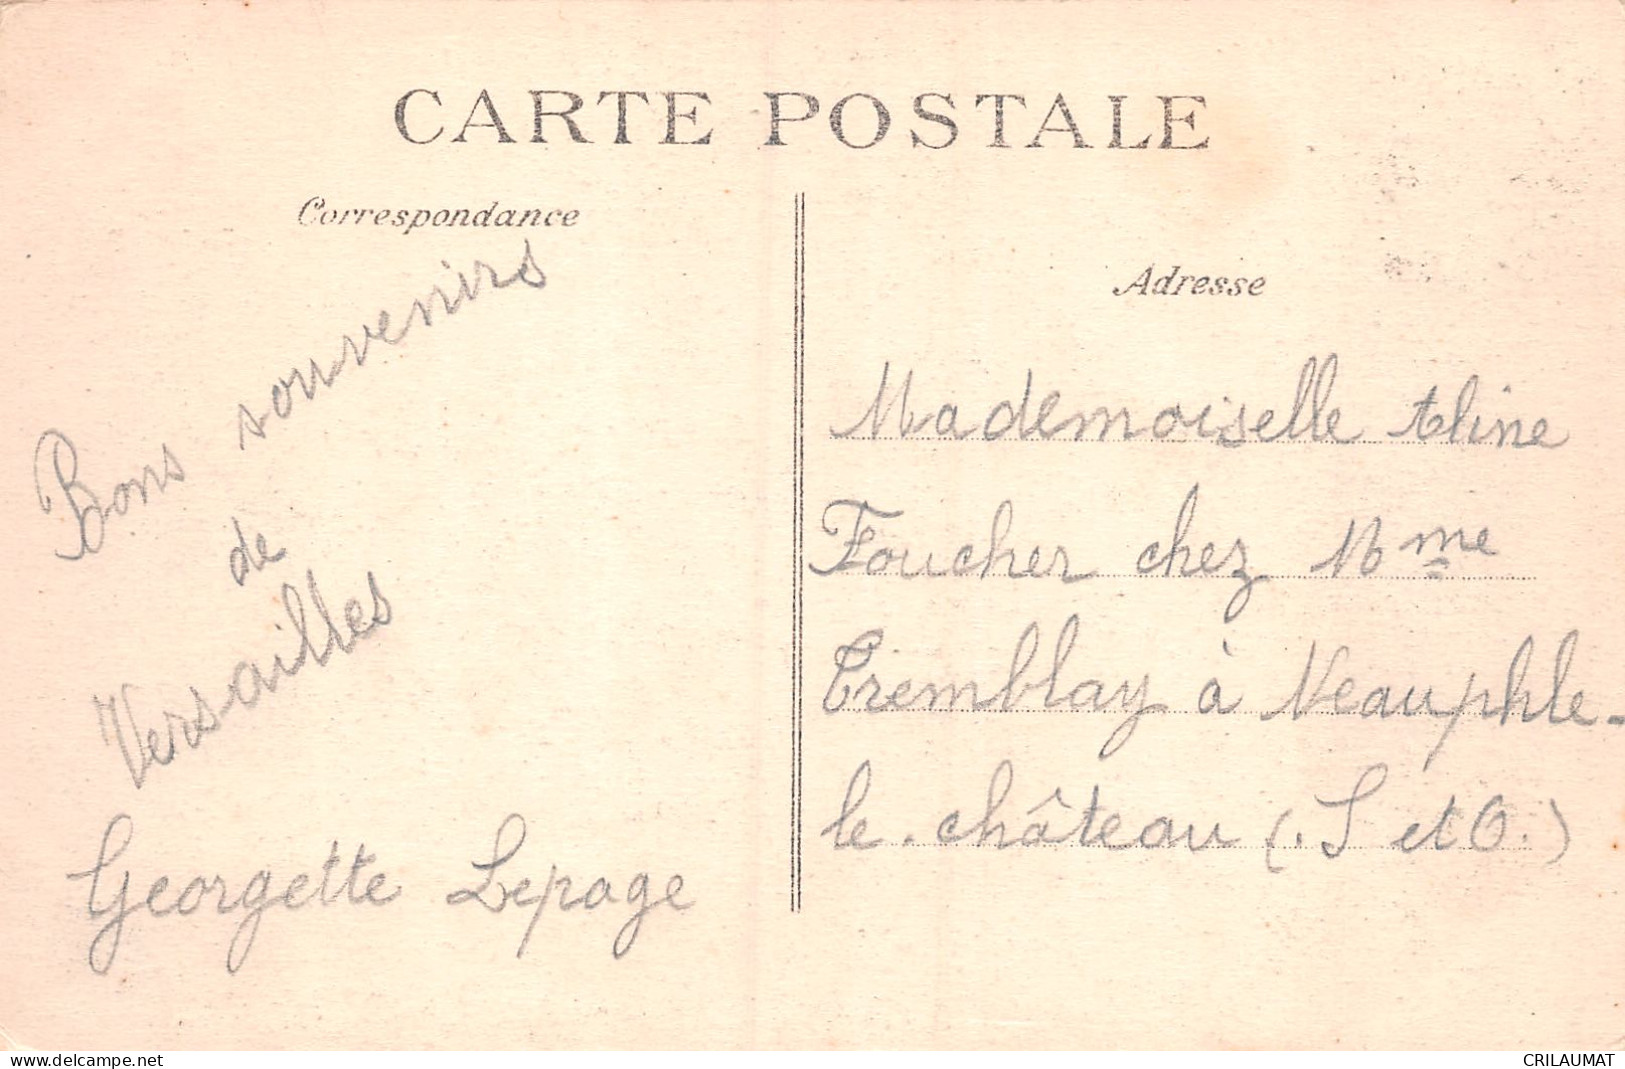 CARTE POSTALE
Correspondance
Bons souvenirs
de
Versailles
Georgette Lepage
Adresse
Mademoiselle Aline
Foucher chez Mme
Tremblay à Neauphle-
le-château (S et O.)
www.delcampe.net
CRILAUMAT